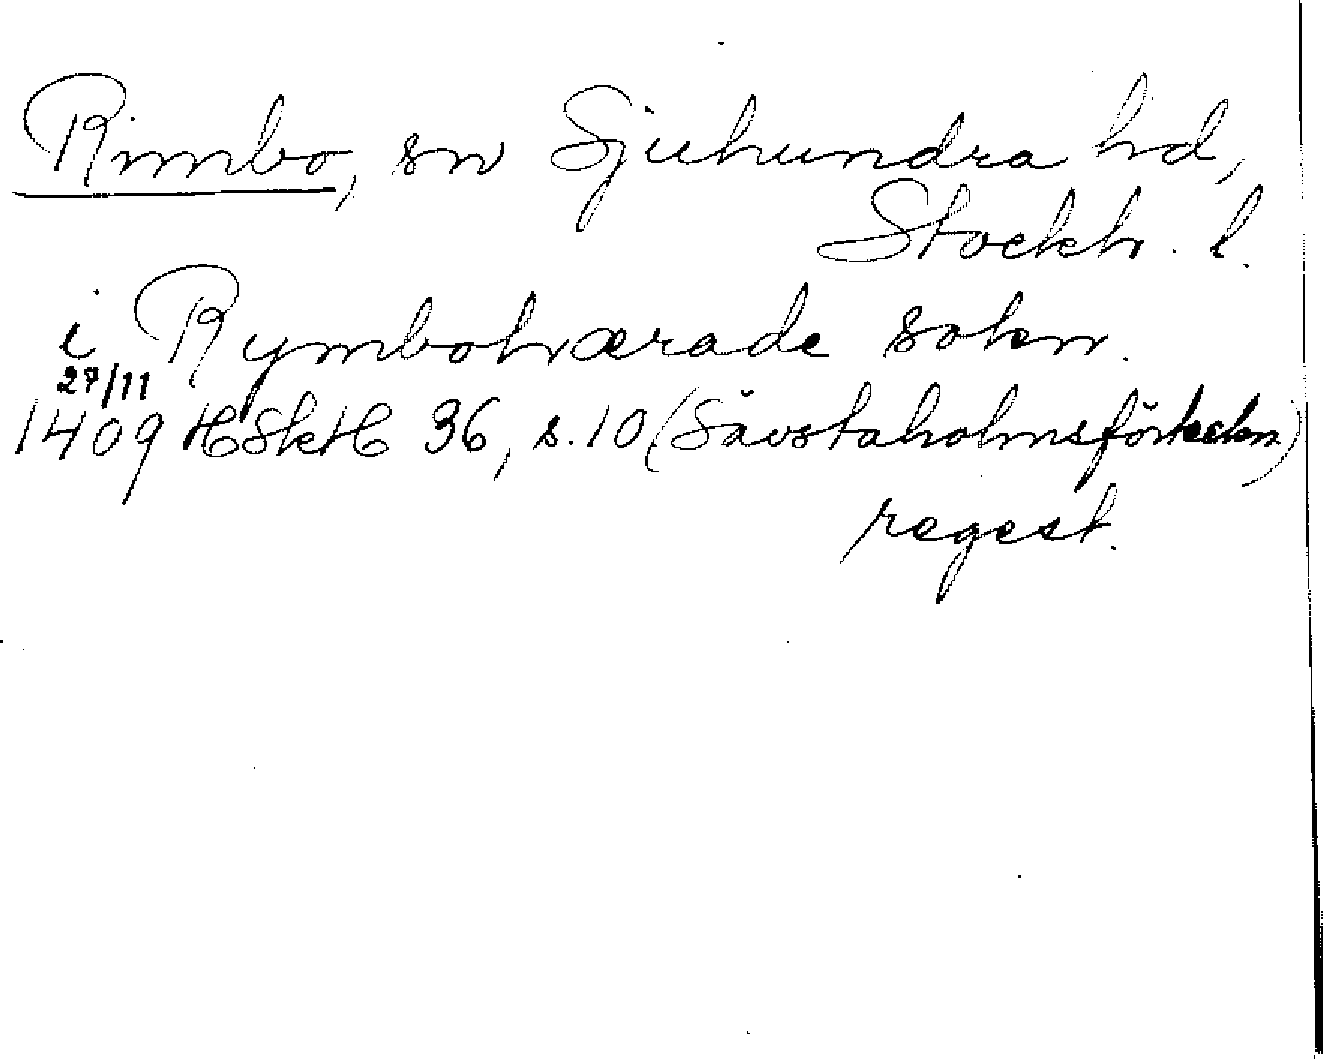 Rimbo, sn Sjuhundra hd,
Stockh. l.
i Rymbohærade sokn.
27/11
1409 HSkH 36, s. 10 (Sävstaholmsförteckn)
regest.